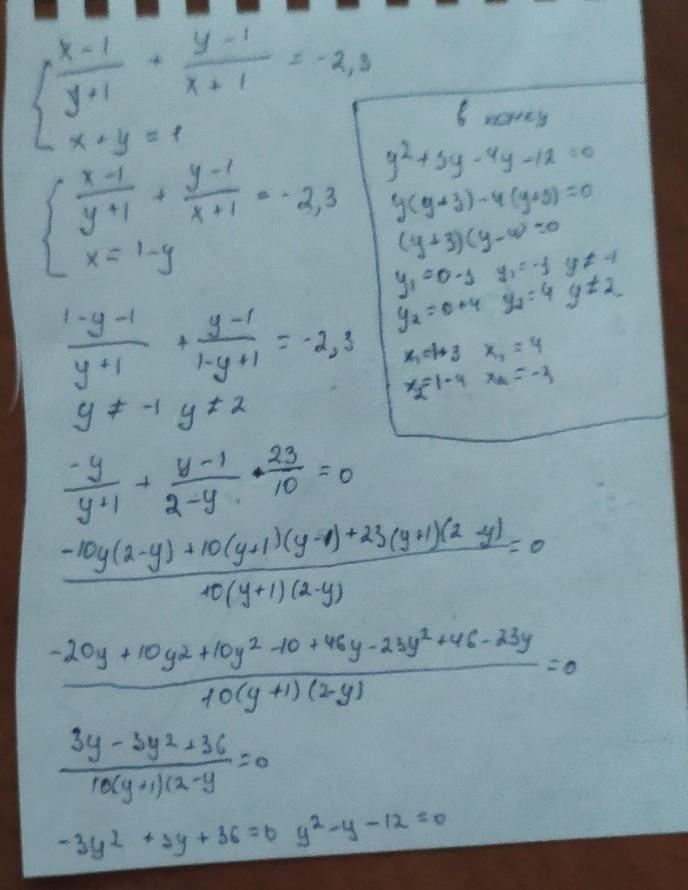 { x-1/y+1 + y-1/x+1 = -2,3
x+y=1
{ x-1/y+1 + y-1/x+1 = -2,3
x=1-y
1-y-1/y+1 + y-1/1-y+1 = -2,3
y≠-1 y≠2
-y/y+1 + y-1/2-y + 23/10 =0
-10y(2-y)+10(y+1)(y-1)+23(y+1)(2-y)/10(y+1)(2-y) =0
-20y+10y2+10y²-10+46y-23y²+46-23y/10(y+1)(2-y) =0
3y-3y²+36/10(y+1)(2-y =0
-3y²+3y+36=0 y²-y-12=0
в
y²+3y-4y-12=0
y(y+3)-4(y+3)=0
(y+3)(y-4)=0
y₁=0-3 y₁=-3 y≠-1
y₂=0+4 y₂=4 y≠2
x₁=1+3 x₁=4
x₂=1-4 x₂=-3